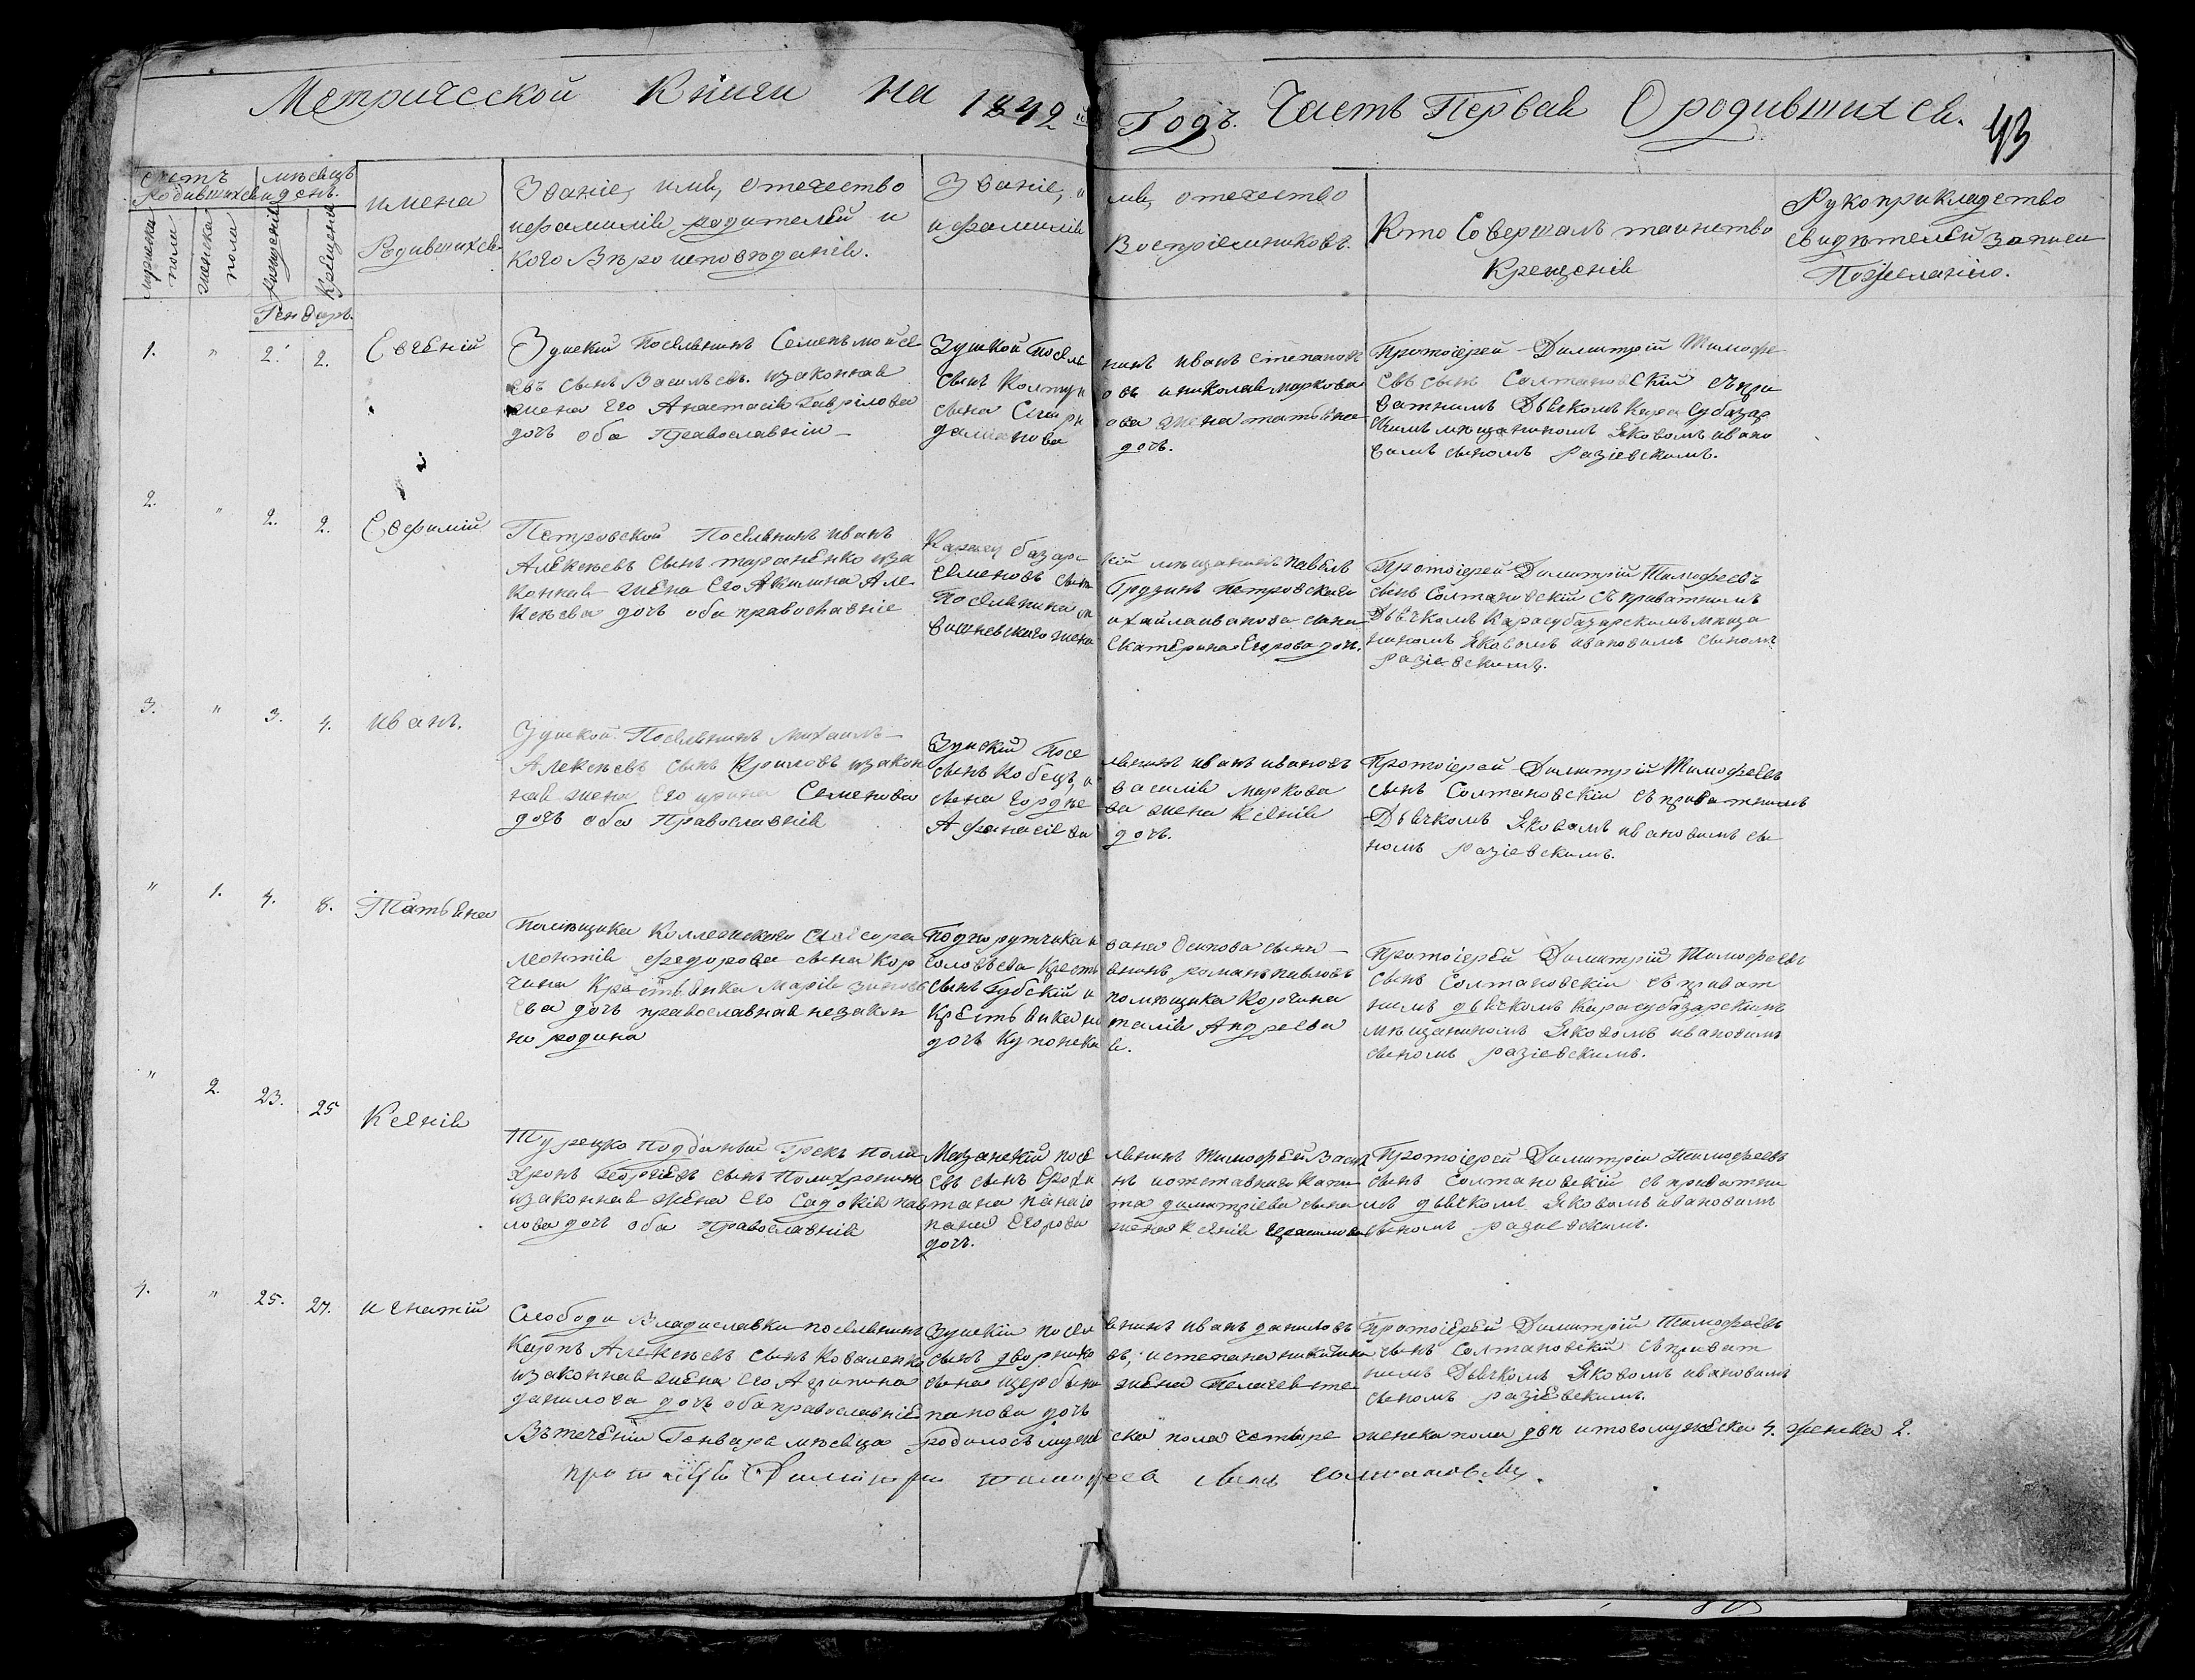 Метрической Книги на 1842й Годъ. Часть Первая О родившихся.
43
Счетъ родившихся
мѣсяцъ и день.
мужска пола
женска пола
рождения
Крещения
имена
Родившихся
Званіе, имя, отечество
и фамилія родителей и
кого Вѣроисповѣданія.
Званіе, имя, отечество
и фамилія Воспріемниковъ.
Кто Совершалъ таинство
Крещенія
Рукоприкладство
свидѣтелей записи
По желанію.
Генваръ.
1. " 2. 2. Евгеній
Зуйскій Поселянинъ Семенъ Мойсе
евъ сынъ Васильевъ. изаконная
жена Его Анастасія Гаврілова
дочь оба Православніи
Зуйской Поселянинъ иванъ Степановъ
сынъ иниколая маркова
сына жена татьяна
дочь.
Протоіерей Димитрій Тимофе
евъ сынъ Солтановскій съ при
ватнимъ Дьячкомъ Карасубазар
скимъ мѣщаниномъ Яковомъ ивано
вимъ синомъ Разіевскимъ.
2. " 2. 2. Евфимій
Петровской Поселянинъ иванъ
Алексѣевъ Сынъ тараненко иза
конная жена Его Акилина Але
ксѣева дочь оба православніе
Карасубазарскій мѣщанинъ Павелъ
Семеновъ сынъ Грудзинъ Петровскаго
Поселянина михайла иванова сына
вишневскаго жена Екатерина Егорова дочь.
Протоіерей Димитрій Тимофеевъ
сынъ Солтановскій съ приватнимъ
Дьячкомъ Карасубазарскимъ мѣща
ниномъ Яковомъ ивановимъ сыномъ
Разіевскимъ.
3. " 3. 4. иванъ.
Зуйской Поселянинъ Михаилъ
Алексѣевъ сынъ Криловъ изакон
ная жена Его ирина Семенова
дочь оба Православнія
Зуйскій Поселянинъ иванъ ивановъ
сынъ Кобецъ, и василія Маркова
сына жена Ксенія
Афанасіева дочь.
Протоіерей Димитрій Тимофеевъ
сынъ Солтановскій съ приватнимъ
Дьячкомъ Яковомъ ивановимъ сы
номъ Разіевскимъ.
" 1. 4. 8. Татьяна
Помѣщика Коллежскаго
леонтія федорова сына Кор
чина Крестьянка Марія
дочь православная незакон
но родила
Подпорутчика ивана Осипова сына
соловьева Крестьянинъ романъ павловъ
сынъ Губскій и помѣщика Корчина
Крестьянка наталія Андреева
дочь
Протоіерей Димитрій Тимофеевъ
сынъ Солтановскій съ приват
нимъ дьячкомъ Карасубазарскимъ
мѣщаниномъ Яковомъ ивановимъ
сыномъ разіевскимъ.
" 2. 23. 25 Ксенія
Турецко подданый Грекъ Поли
хронъ Георгіевъ сынъ Полихронинъ
изаконная жена Его Садокія пав
лова дочь оба Православнія
Мазанскій поселянинъ Тимофей Васил
евъ сынъ и отставнаго Капи
тана Панаіота димитріева сына
Егорова жена Ксенія Герасимова
дочь.
Протоіерей Димитрій Тимофеевъ
сынъ Солтановскій съ приватни
мъ дьячкомъ Яковомъ ивановимъ
сыномъ разіевскимъ.
4. " 25. 27. игнатій
Слободи Владиславки поселянинъ
Карпъ Алексѣевъ сынъ Коваленко
изаконная жена Его Агрипина
данилова дочь оба православніе
Зуйскій поселянинъ иванъ даниловъ
сынъ дворниковъ, истепана никитина
сына щербини жена Пелагея сте
панова дочь
Протоіерей Димитрій Тимофеевъ
сынъ Солтановскій съ приват
нимъ Дьячкомъ Яковомъ ивановимъ
сыномъ разіевскимъ.
Въ теченіи Генваря мѣсяца родилось мужеска пола четыре женска пола две итого мужеска 4. женска 2.
протоіерей Димитрій тимофеевъ сынъ солтановскій.